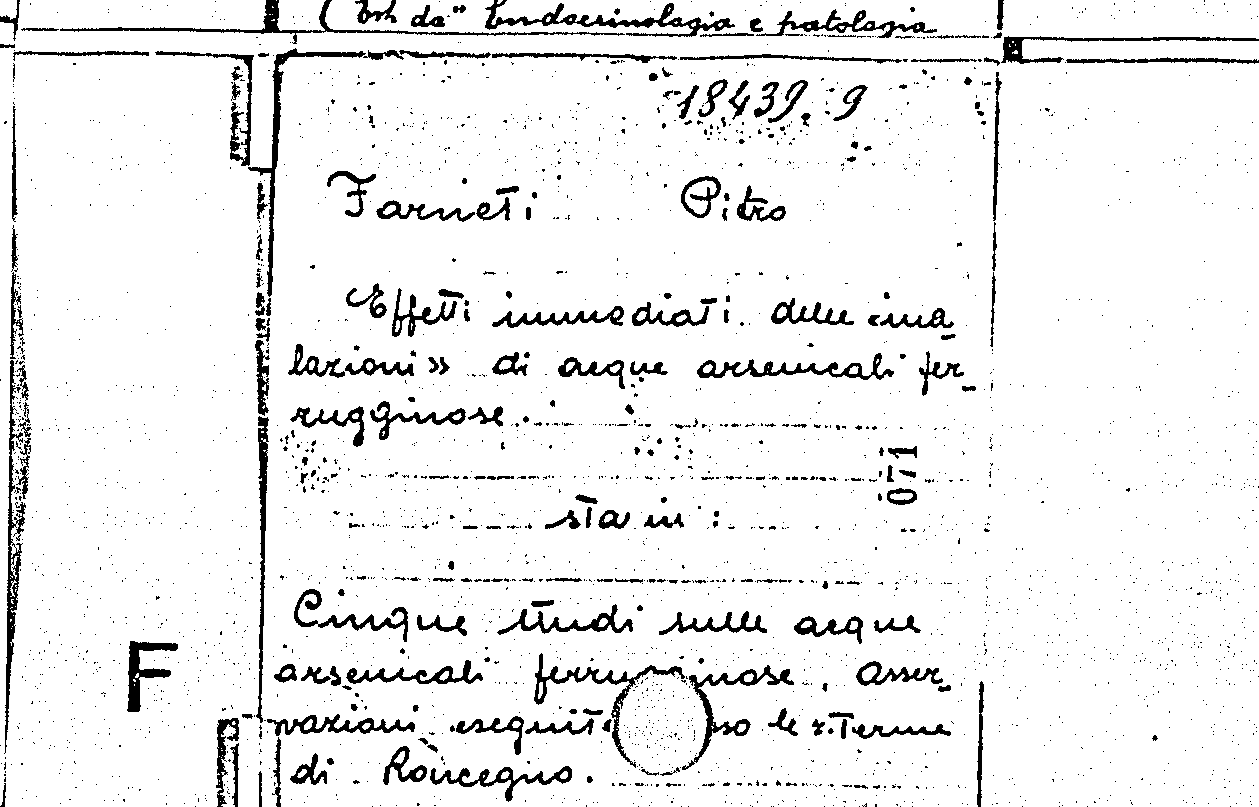 da" Endocrinologia e patologia
18439. 9
Farneti Pitro
Effetti immediati delle «ina-
lazioni» di acque arsenicali fer-
rugginose.
071
sta in :
Cinque studi sulle acque
arsenicali ferru inose. Osser-
vazioni eseguit so le r. Terme
di Roncegno.
F